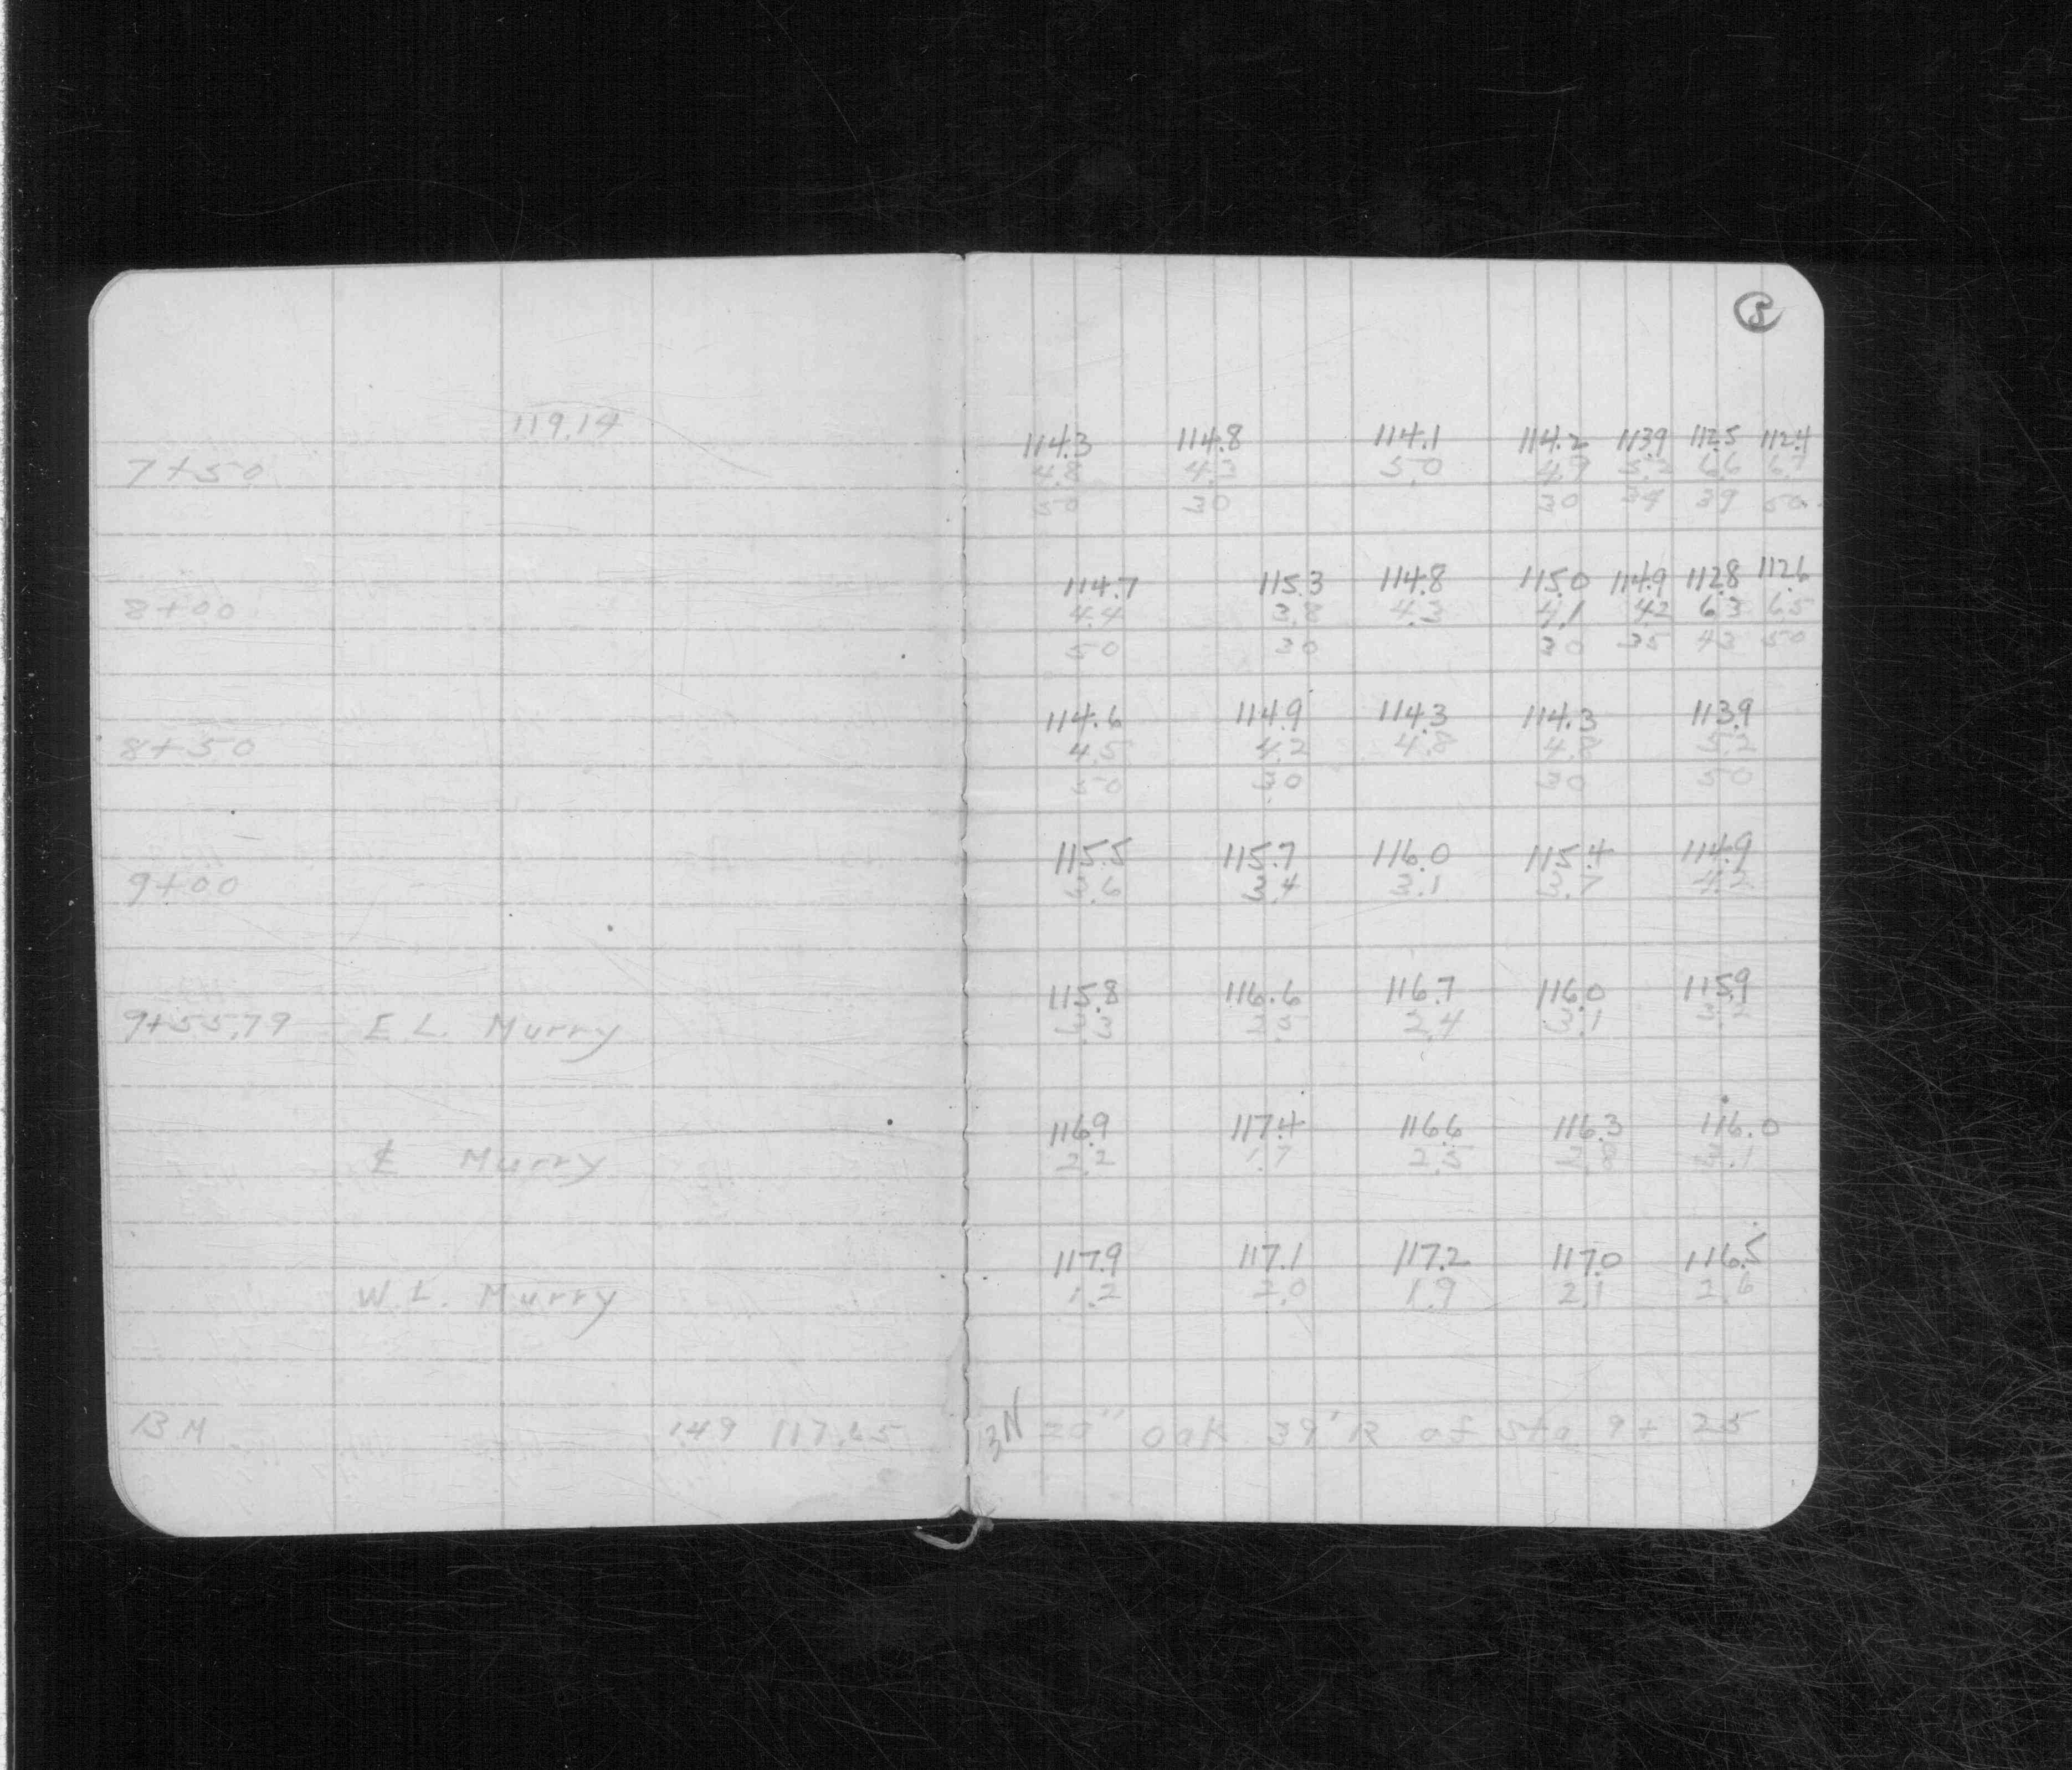 8
119.14
114.3 114.8 114.1 114.2 113.9 112.5 112.4
7+50 4.8 4.3 5.0 4.9 5.2 6.6 6.7
50 30 30 34 39 50
114.7 115.3 114.8 115.0 114.9 112.8 112.6
8+00 4.4 3.8 4.3 4.1 4.2 6.3 6.5
50 30 30 35 43 50
114.6 114.9 114.3 114.3 113.9
8+50 4.5 4.2 4.8 4.8 5.2
50 30 30 50
115.5 115.7 116.0 115.4 114.9
9+00 3.6 3.4 3.1 3.7 4.2
115.8 116.6 116.7 116.0 115.9
9+55.79 E.L. Murry 3.3 2.5 2.4 3.1 3.2
116.9 117.4 116.6 116.3 116.0
℄ Murry 2.2 1.7 2.5 2.8 3.1
117.9 117.1 117.2 117.0 116.5
W.L. Murry 1.2 2.0 1.9 2.1 2.6
BM 149 117.65 BN 20" oak 39' R of Sta 9+25